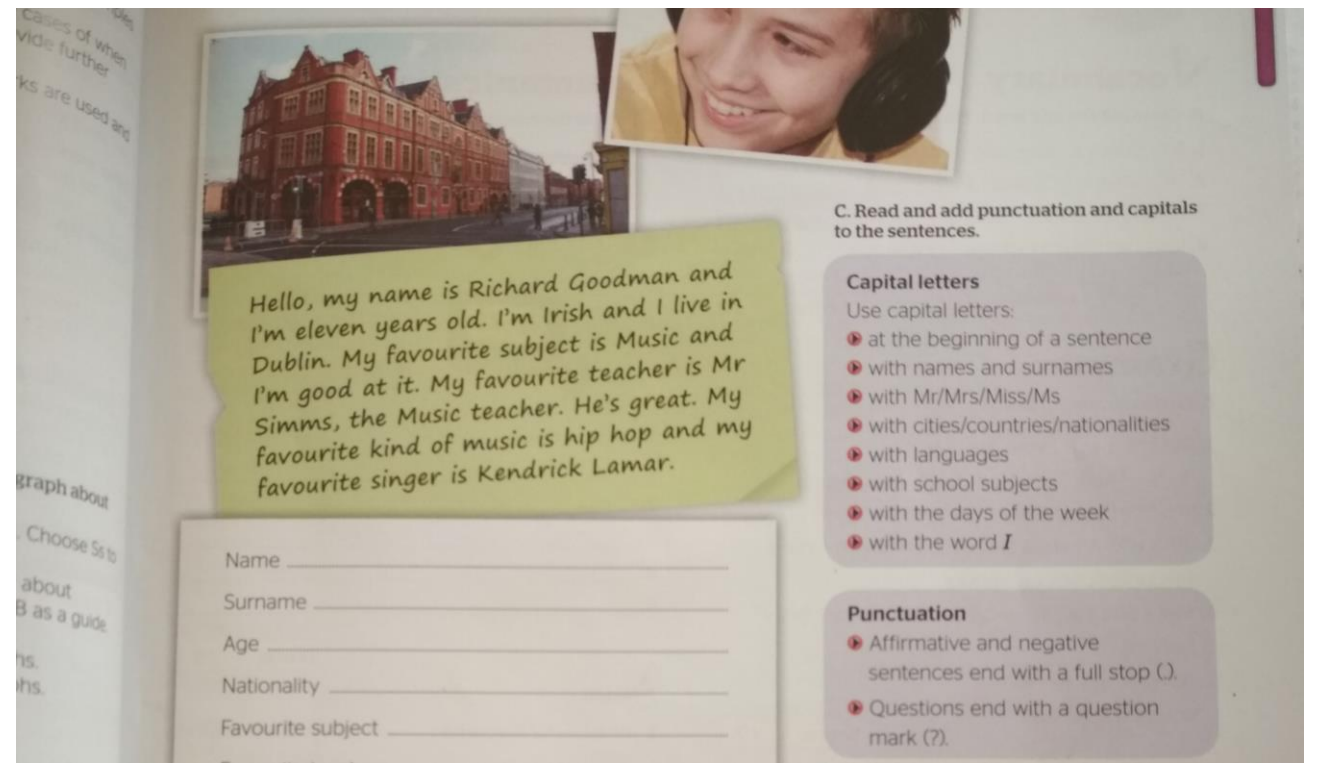 cases of when
vide further
ks are used and
graph about
. Choose Ss to
about
B as a guide.
hs.
phs.
Hello, my name is Richard Goodman and
I'm eleven years old. I'm Irish and I live in
Dublin. My favourite subject is Music and
I'm good at it. My favourite teacher is Mr
Simms, the Music teacher. He's great. My
favourite kind of music is hip hop and my
favourite singer is Kendrick Lamar.
Name
Surname
Age
Nationality
Favourite subject
C. Read and add punctuation and capitals
to the sentences.
Capital letters
Use capital letters:
at the beginning of a sentence
with names and surnames
with Mr/Mrs/Miss/Ms
with cities/countries/nationalities
with languages
with school subjects
with the days of the week
with the word I
Punctuation
Affirmative and negative
sentences end with a full stop (.).
Questions end with a question
mark (?).